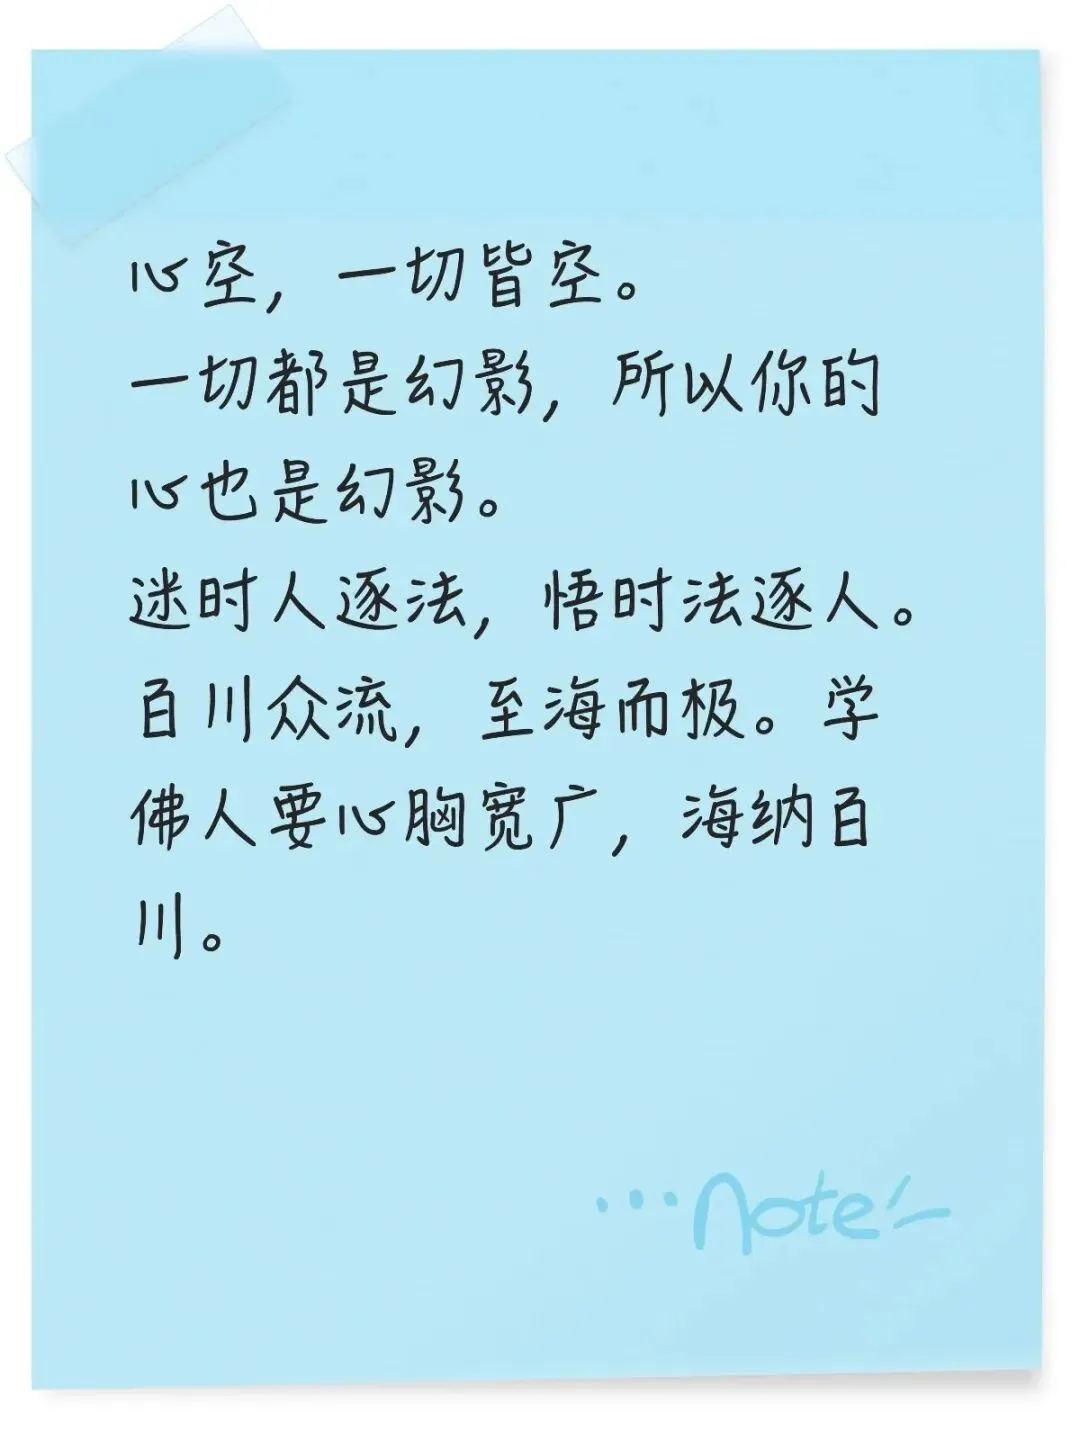 心空，一切皆空。
一切都是幻影，所以你的
心也是幻影。
迷时人逐法，悟时法逐人。
百川众流，至海而极。学
佛人要心胸宽广，海纳百
川。
...note